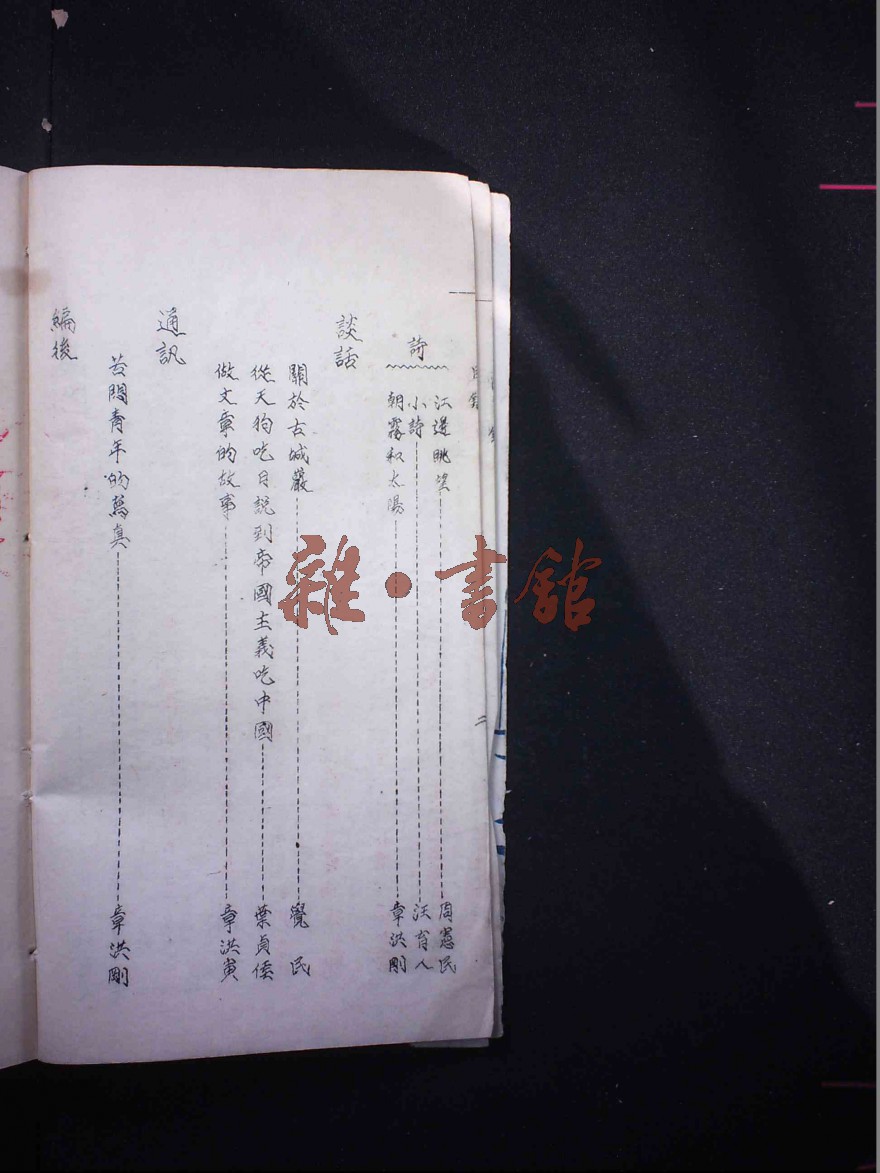 目錄
詩
江邊眺望 周憲民
小詩 汪育人
朝霧和太陽 章洪剛
談話
關於古城巖 覺民
從天狗吃日說到帝國主義吃中國 葉貞倭
做文章的故事 章洪寅
通訊
苦悶青年的寫真 章洪剛
編後
二
雜·書館